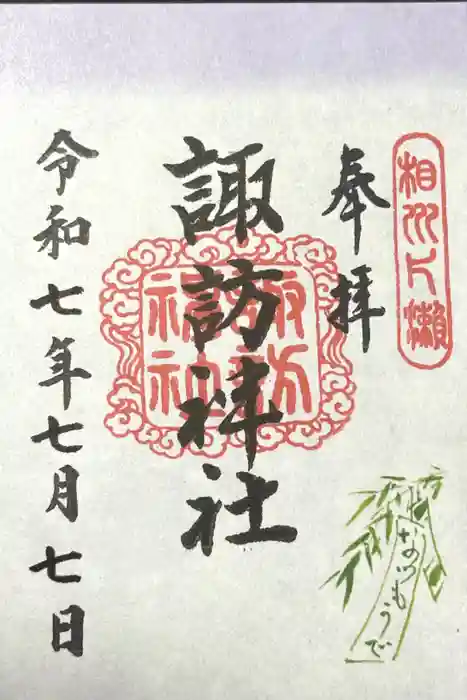 相州片瀬
奉拝
諏訪神社
諏訪
神社
令和七年七月七日
なつもうで